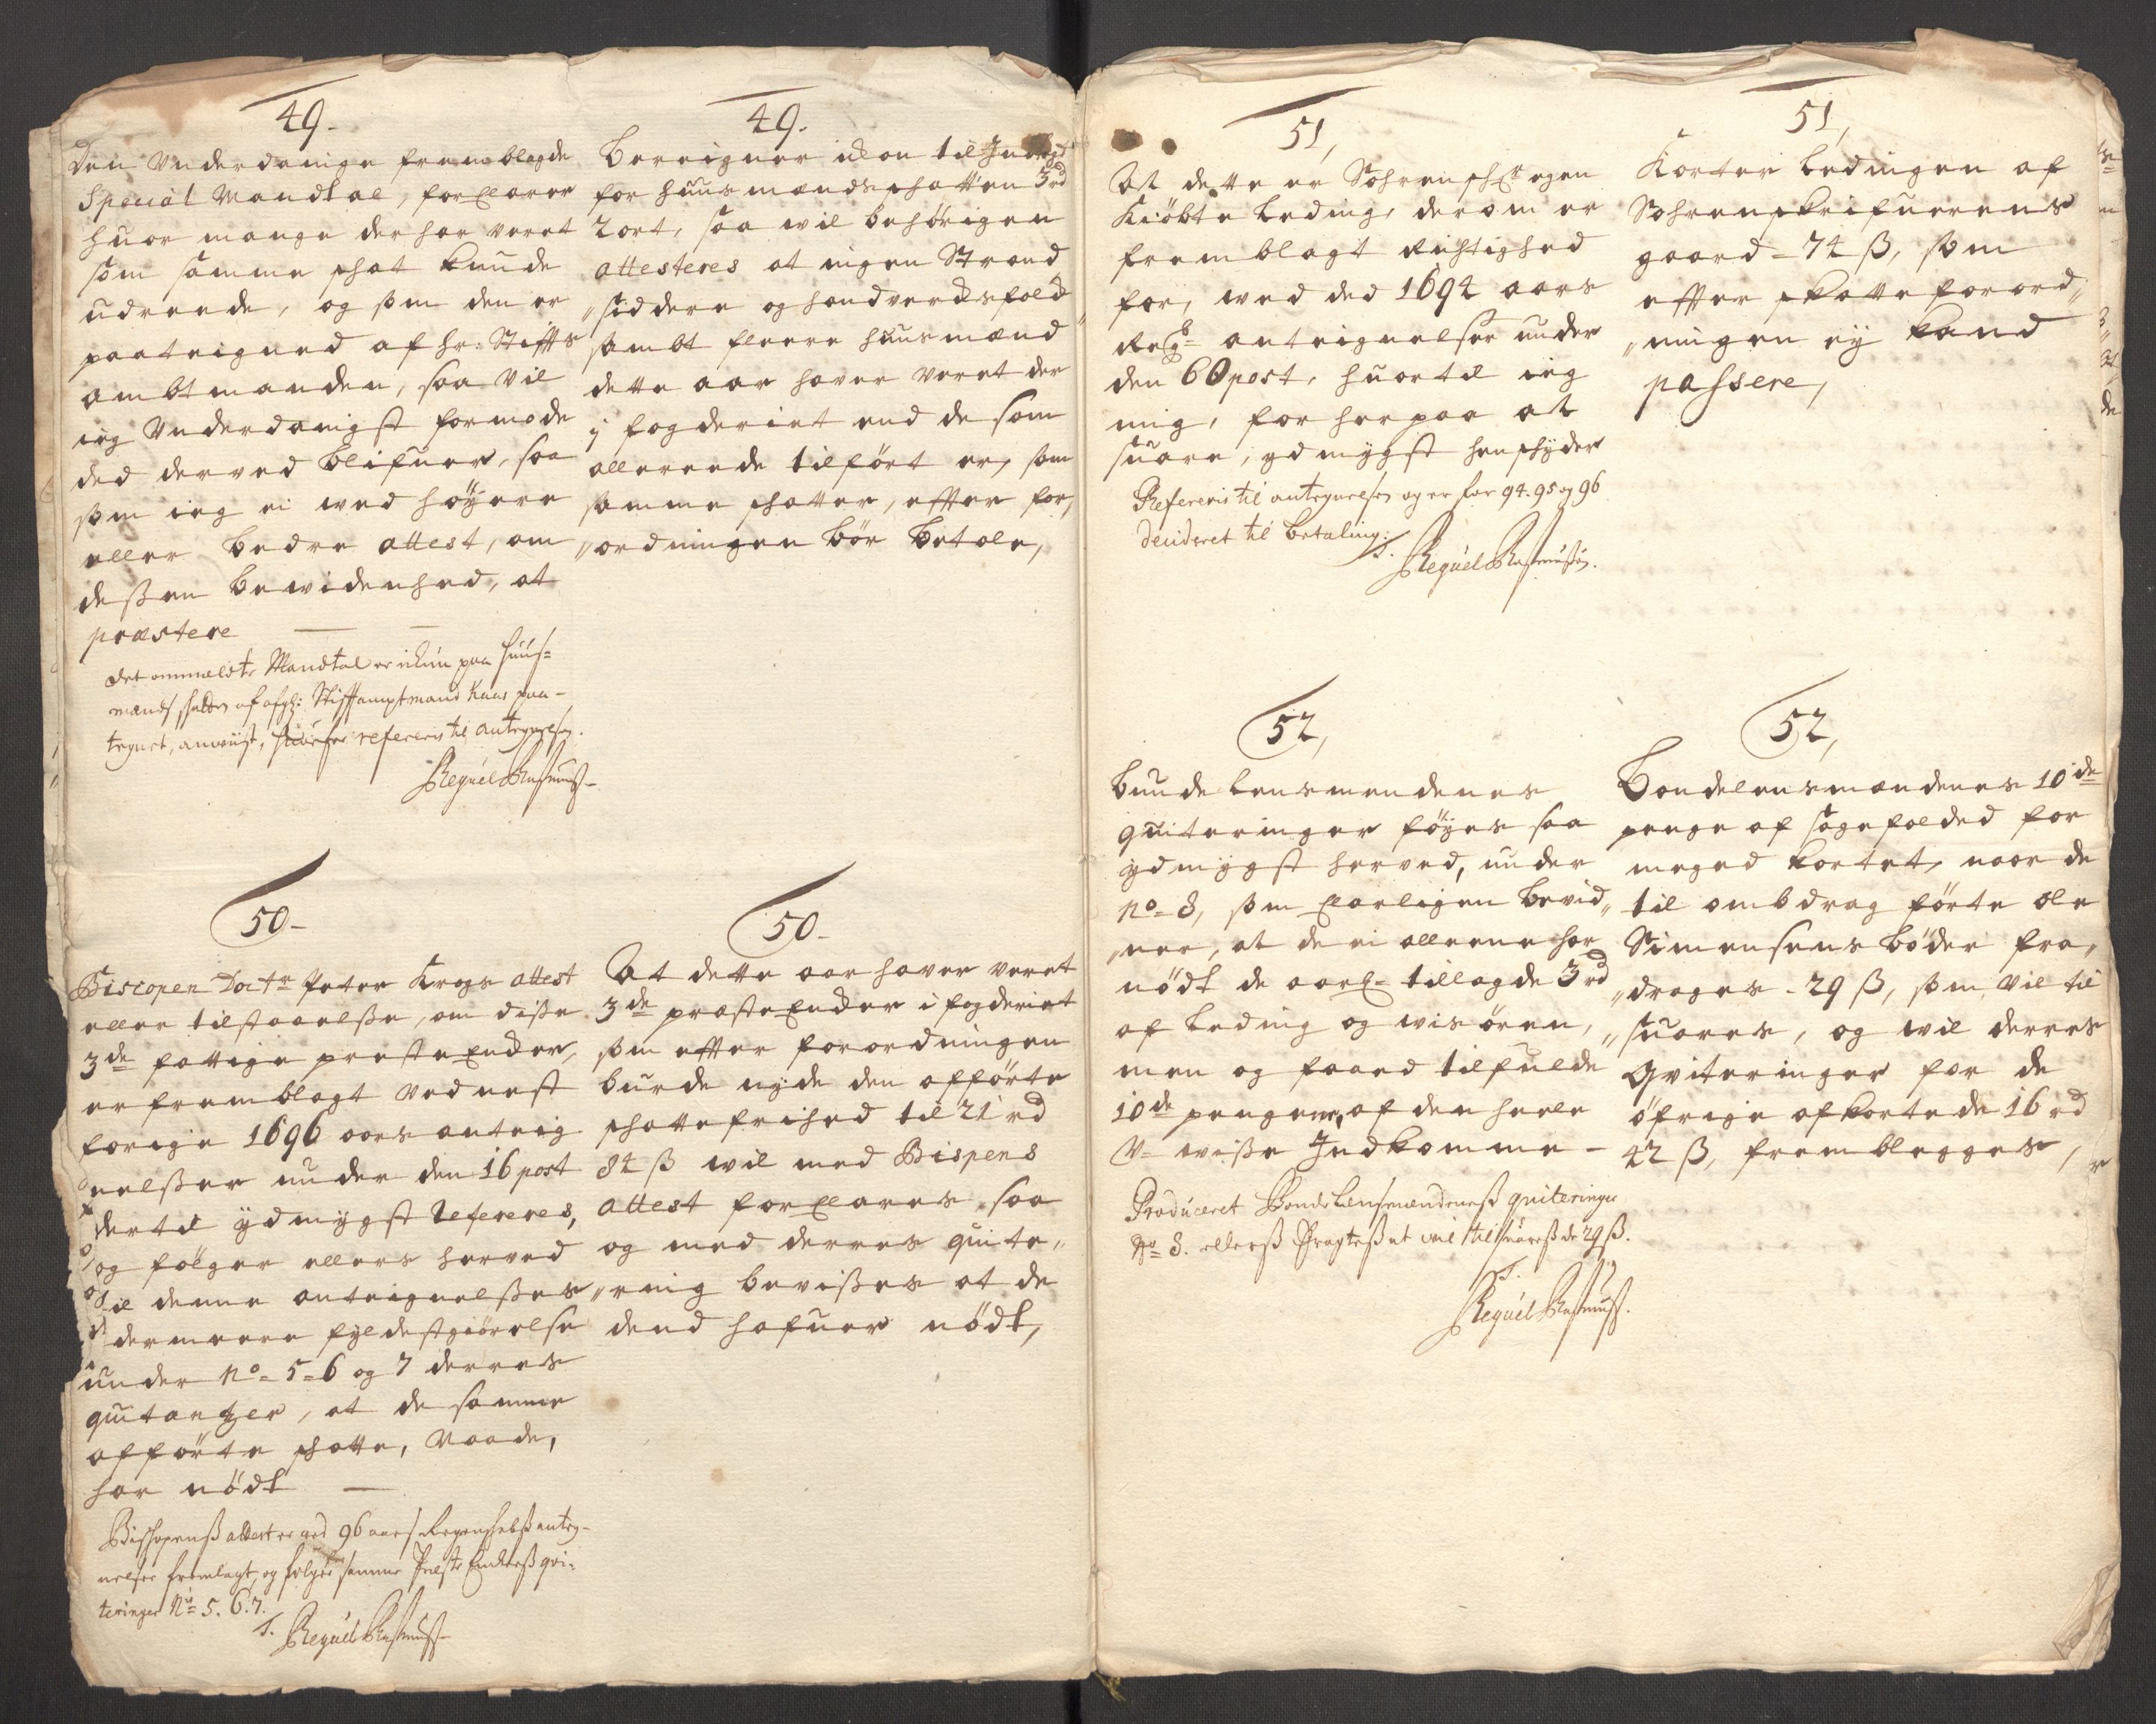 49.
Den Underdanige fremblagde
Special Mandtal, forclarer
huor mange der har veret
som samme schat kunde
udreede, og som den er
paateigned af hr: Stiffts
ambtmanden, saa vil
ieg Underdanigst formode
ded derved blifuer, saa
som ieg ei med höyere
eller bedre attest, om
dessen bewidenhed, at
præstere
det ommeldte Mandtal er ichun paa huus=
mands schatten af afg: Stifftamptmand Kaas paa-
tegnet, anviist, refereris til antegnelsen.
Requel Rasmuss-
49.
Bereigner icon til Indtegt
for huusmandschatten 3 rd
2 ort, saa wil behörigen
attesteres at ingen Strand
„siddere og handverchsfolch
sambt fleere huusmænd
dette aar haver veret der
i fogderiet end de som
allereede tilfört er, som
samme schatter, effter for,
„ordningen bör betale,
50-
Biscopen Doctr Peter Krogs attest
eller tilstaaelsse, om disse
3de fattige presteEncker,
er fremblagt ved nest
forige 1696 aars anteig
nelsser under den 16 post
dertil ydmygst refereres,
og fölger ellers herved
til denne anteignelsses
dermeere fyldestgiörelse
under No= 5=6 og 7 derres
quitantzer, at de samme
afförte schatte, Maade,
har nödt
Bischopenss attest er ved 96 aars Regenschabss anteg-
nelser fremlagt, og følger samme Præste Enckerss qvi-
teringer No= 5. 6. 7.
T. Requel Rasmuss-
50-
At dette aar haver veret
3de præsteEncker i fogderiet
som effter forordningen
burde nyde den afförte
schattefrihed til 21 rd
84 ß wil med Bispens
attest forclares saa
og med derres quite„
„ring bevisses at de
dend hafuer nödt,
51,
At dette er Sorenschr: egen
Kiöbte leding, derom er
fremblagt Rictighed
for, ved ded 1694 aars
Regb= anteignelser under
den 60 post, huortil ieg
mig, for herpaa at
suare, ydmygst henschyder
Refereris til antegnelsen og er for 94. 95 og 96
decideret til betaling.
T. Requel Rasmussen.
51,
Korter ledingen af
Sohrenskrifuerens
gaard - 74 ß, som
effter skatteforord„
„ningen ey kand
passere,
52,
Bunde lensmendenes
quiteringer föyes saa
ydmygst herved, under
No= 8, som clarligen bevid„
„ner, at de ei alleene har
nödt de aarl= tillagde 3 rd
af leding og visören,
men og faaed tilfulde
10de pengene, af den heele
U=wisse Indkomme -
Producert Bonde Lensmændeness quiteringer
No 8. ellerss Fragtess at vil tilsuaress de 29 ß.
T.
Requel Rasmuss.
52,
Bondelensmændenes 10de
penge af sagefalded for
meged kortet, naar de
til ombdrag förte ole
Simensens böder fra„
„drages - 29 ß, som vil til
„suares, og wil derres
Qviteringer for de
öfrige afkortede 16 rd
42 ß, fremblegges,